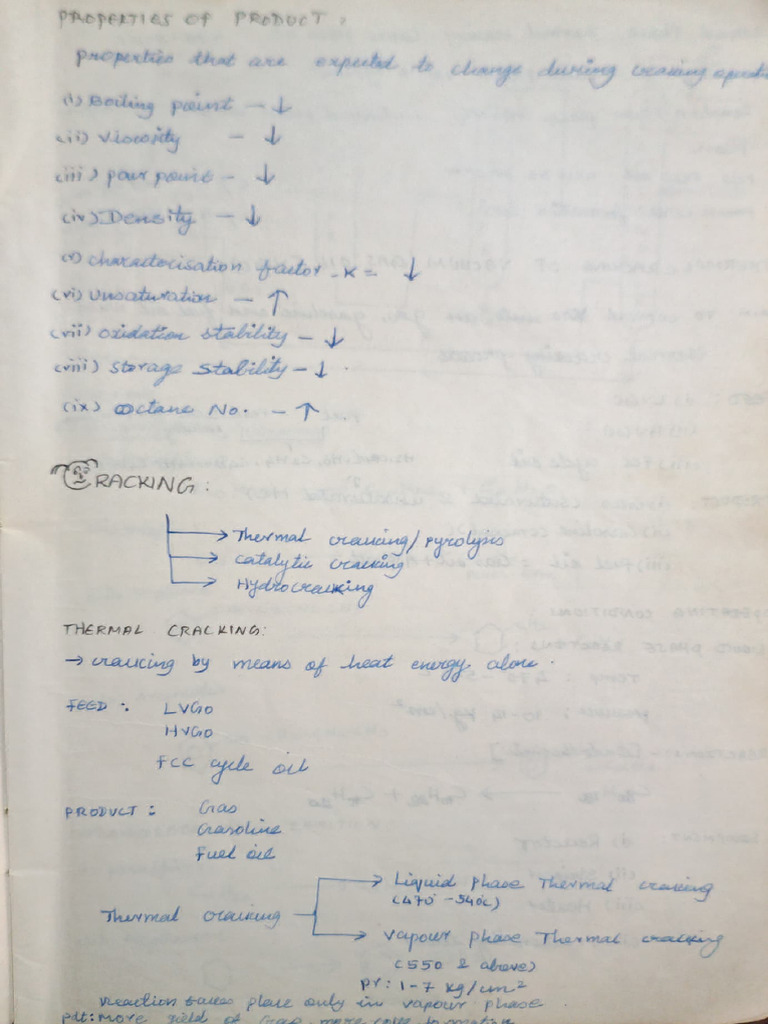 PROPERTIES OF PRODUCT:
properties that are expected to change during cracking
(i) Boiling point - ↓
(ii) Viscosity - ↓
(iii) pour point - ↓
(iv) Density - ↓
(v) charactorisation factor - K = ↓
(vi) unsaturation - ↑
(vii) oxidation stability - ↓
(viii) Storage stability - ↓
(ix) Octane No. - ↑
CRACKING:
→ Thermal cracking/pyrolysis
→ catalytic cracking
→ Hydrocracking
THERMAL CRACKING:
→ cracking by means of heat energy alone.
FEED : LVGO
HVGO
FCC cycle oil
PRODUCT : Gas
Gasoline
Fuel oil
→ Liquid phase Thermal cracking
(470° - 540°C)
Thermal cracking
→ Vapour phase Thermal cracking
(550 & above)
pr: 1-7 kg/cm²
Reaction takes place only in vapour phase
pdt: more yield of Gas, more coke formation